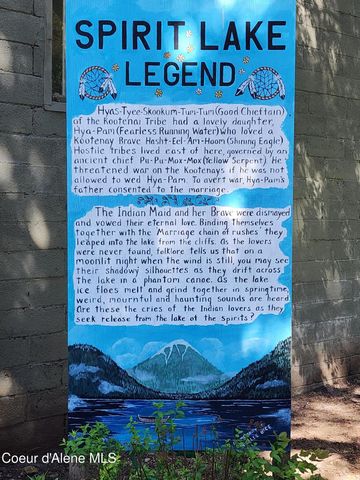 SPIRIT LAKE
LEGEND
Hyas-Tyee-Skookum-Tum-Tum (Good Chieftain)
of the Kootenai Tribe had a lovely daughter,
Hya-Pam (Fearless Running Water) who loved a
Kootenay Brave Hasht-Eel-Am-Hoom (Shining Eagle)
Hostile tribes lived east of here, governed by an
ancient chief Pu-Pu-Mox-Mox (Yellow Serpent). He
threatened war on the Kootenays if he was not
allowed to wed Hya-Pam. To avert war, Hya-Pam's
father consented to the marriage.
The Indian Maid and her Brave were dismayed
and vowed their eternal love. Binding themselves
together with the Marriage chain of rushes they
leaped into the lake from the cliffs. As the lovers
were never found, folklore tells us that on a
moonlit night when the wind is still, you may see
their shadowy silhouettes as they drift across
the lake in a phantom canoe. As the lake
ice floes melt and grind together in springtime,
weird, mournful and haunting sounds are heard
Are these the cries of the Indian lovers as they
seek release from the lake of the spirits?
Coeur d'Alene MLS